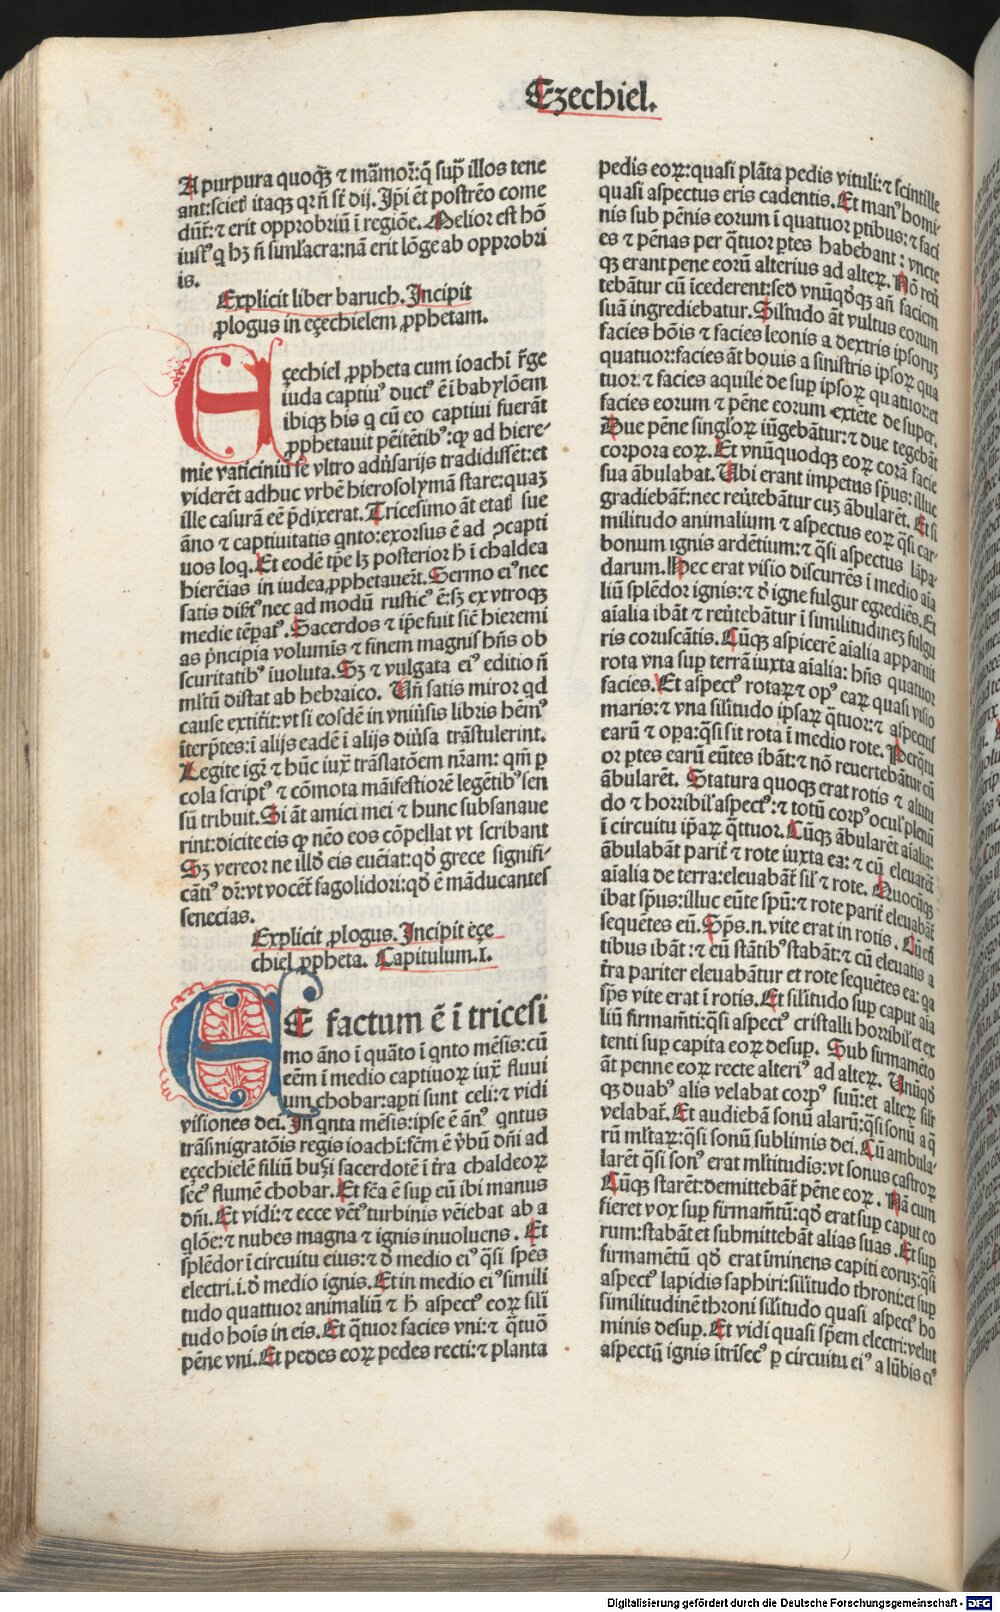 Ezechiel.
A purpura quoq̄ ⁊ mãmor̃:q̃ sup̃ illos tene
ant:scietꝭ itaqꝫ qꝛ ñ st̃ dij. Ip̃i ẽt postrẽo come
dũt̃:⁊ erit opprobriũ ĩ regiõe. Melior est hõ
iustꝰ q hꝫ ñ simłacra:nã erit lõge ab opprobri
is.
Explicit liber baruch. Incipit
ꝓlogus in eçechielem ꝓphetam.
Eçechiel ꝓpheta cum ioachĩ r̃ge
iuda captiuꝰ ductꝰ ẽ ĩ babylõem
ibiqꝫ his q cũ eo captiui fuerãt
ꝓphetauit pẽitẽtibꝰ:ꝙ ad hiere-
mie vaticiniũ se vltro adũsarijs tradidissẽt:et
viderẽt adhuc vrbẽ hierosolymã stare:quaꝫ
ille casurã eẽ p̃dixerat. Tricesimo ãt etatꝭ sue
ãno ⁊ captiuitatis qnto:exorsus ẽ ad ↄcapti
uos loq. Et eodẽ tp̃e lꝫ posterior h̃ ĩ chaldea
hierẽias in iudea ꝓphetauer̃t. Sermo eiꝰ nec
satis disertꝰ nec ad modũ rusticꝰ ẽ:sꝫ ex vtroqꝫ
medie tẽp̃atꝰ. Sacerdos ⁊ ip̃e fuit sic̃ hieremi
as p̃ncipia volumĩs ⁊ finem magnis hñs ob
scuritatibꝰ ĩuoluta. Sꝫ ⁊ vulgata eiꝰ editio ñ
mltũ distat ab hebraico. Vñ satis miror qd
cause extiter̃it:vt si eosdẽ in vniũsis libris hẽmꝰ
ĩterp̃tes:ĩ alijs eadẽ ĩ alijs diũsa trãstulerint.
Legite igr̃ ⁊ hũc iux̃ trãslatõem nr̃am: qm̃ p
cola scriptꝰ ⁊ cõmota mãifestiorẽ legẽtibꝰ sen
sũ tribuit. Si ãt amici mei ⁊ hunc subsannaue
rint:dicite eis ꝙ nẽo eos cõpellat vt scribant
Sꝫ vereor ne illđ eis euẽiat:qđ grece signifi-
cãtiꝰ dr̃:vt vocẽt̃ fagolidori:qđ ẽ mãducantes
senecias.
Explicit ꝓlogus. Incipit eçe
chiel ꝓpheta. Capitulum.I.
ET factum ẽ ĩ tricesi
mo ãno ĩ quãto ĩ qnto mẽsis:cũ
eẽm ĩ medio captiuoꝝ iux̃ fluui
um chobar:apti sunt celi:⁊ vidi
visiones dei. In qnta mẽsis:ipse ẽ ãnꝰ qntus
trãsmigratõis regis ioachĩ:fc̃m ẽ v̉bũ dñi ad
eçechielẽ filiũ buꝫi sacerdotẽ ĩ tr̃a chaldeoꝝ
secꝰ flumẽ chobar. Et fc̃a ẽ sup eũ ibi manus
dñi. Et vidi:⁊ ecce vẽtꝰ turbinis vẽiebat ab a
qlõe:⁊ nubes magna ⁊ ignis inuoluens. Et
splẽdor ĩ circuitu eius:⁊ đ medio eiꝰ q̃si spẽs
electri.i.đ medio ignis. Et in medio eiꝰ simili
tudo quattuor animaliũ ⁊ h̃ aspectꝰ eoꝝ sili
tudo hoĩs in eis. Et q̃tuor facies vni:⁊ q̃tuõ
pẽne vni. Et pedes eoꝝ pedes recti:⁊ planta
pedis eoꝝ:quasi plãta pedis vituli:⁊ scintille
quasi aspectus eris cadentis. Et manꝰ homi-
nis sub pẽnis eorum ĩ quatuor ptibus:⁊ faci
es ⁊ pẽnas per q̃tuor ptes habebant: vncte
qꝫ erant pene eorũ alterius ad alteꝝ. Nõ reũ
tebãtur cũ ĩcederent:sed vnũqđqꝫ añ faciem
suã ingrediebatur. Siłtudo ãt vultus eorum
facies hõis ⁊ facies leonis a dextris ipsoruꝫ
quatuor:facies ãt bouis a sinistris ipsoꝝ qua
tuor:⁊ facies aquile de sup ipsoꝝ quatuor:et
facies eorum ⁊ pẽne eorum extẽte de super.
Due pẽne singłoꝝ iũgebãtur:⁊ due tegebãt
corpora eoꝝ. Et vnũquodqꝫ eoꝝ corã facie
sua ãbulabat. Vbi erant impetus sp̃us:illuc
gradiebãt̃:nec reũtebãtur cuꝫ ãbularẽt. Et si
militudo animalium ⁊ aspectus eoꝝ q̃si car-
bonum ignis ardẽtium:⁊ q̃si aspectus lãpa-
darum. Hec erat visio discurrẽs ĩ medio aĩa
liũ splẽdor ignis:⁊ đ igne fulgur egrediẽs. Et
aĩalia ibãt ⁊ reũtebãtur ĩ similitudineꝫ fulgu
ris coruscãtis. Cũqꝫ aspicerẽ aĩalia apparuit
rota vna sup terrã iuxta aĩalia: hñs quatuor
facies. Et aspectꝰ rotaꝝ ⁊ opꝰ eaꝝ quasi visio
maris:⁊ vna siłitudo ipsaꝝ q̃tuor:⁊ aspectus
earũ ⁊ opa:q̃si sit rota ĩ medio rote. Per q̃tu
or ptes earũ eũtes ibãt:⁊ nõ reuertebãtur cũ
ãbularẽt. Statura quoqꝫ erat rotis ⁊ altitu
do ⁊ horribił aspectꝰ:⁊ totũ corpꝰ oculꝭ plenũ
ĩ circuitu ip̃aꝝ q̃ttuor. Cũqꝫ ãbularẽt aĩalia:
ãbulabãt parit̃ ⁊ rote iuxta ea: ⁊ cũ eleuarẽt
aĩalia de terra:eleuabãt̃ sił ⁊ rote. Quocũqꝫ
ibat sp̃us:illuc eũte sp̃u:⁊ rote parit̃ eleuabãt̃
sequẽtes eũ. Sp̃s.n.vite erat in rotis. Cũ eũ
tibus ibãt:⁊ cũ stãtibꝰ stabãt:⁊ cũ eleuatis a
tr̃a pariter eleuabãtur et rote sequẽtes ea: qa
sp̃s vite erat ĩ rotis. Et siłitudo sup caput aĩa
liũ firmam̃ti:q̃si aspectꝰ cristalli horribił et ex
tenti sup capita eoꝝ desup. Sub firmamẽto
ãt penne eoꝝ recte alteriꝰ ad alteꝝ. Vnũqđ
qꝫ duabꝰ alis velabat corpꝰ suũ:et alteꝝ siłr
velabat̃. Et audiebã sonũ alarũ:q̃si sonũ a q̃
rũ mltaꝝ:q̃si sonũ sublimis dei. Cũ ambula-
larẽt q̃si sonꝰ erat mltitudĩs:vt sonus castroꝝ
Cũqꝫ starẽt:demittebãt̃ pẽne eoꝝ. Nã cum
fieret vox sup firmam̃tũ:qđ erat sup caput eo
rum:stabãt et submittebãt alias suas. Et sup
firmamẽtũ qđ erat ĩminens capiti eoruꝫ:q̃si
aspectꝰ lapidis saphiri:siłitudo throni:et sup
similitudinẽ throni siłitudo quasi aspectꝰ ho
minis desup. Et vidi quasi sp̃em electri:velut
aspectũ ignis ĩtrĩsecꝰ p circuitu eiꝰ a lũbis eiꝰ
Digitalisierung gefördert durch die Deutsche Forschungsgemeinschaft - DFG